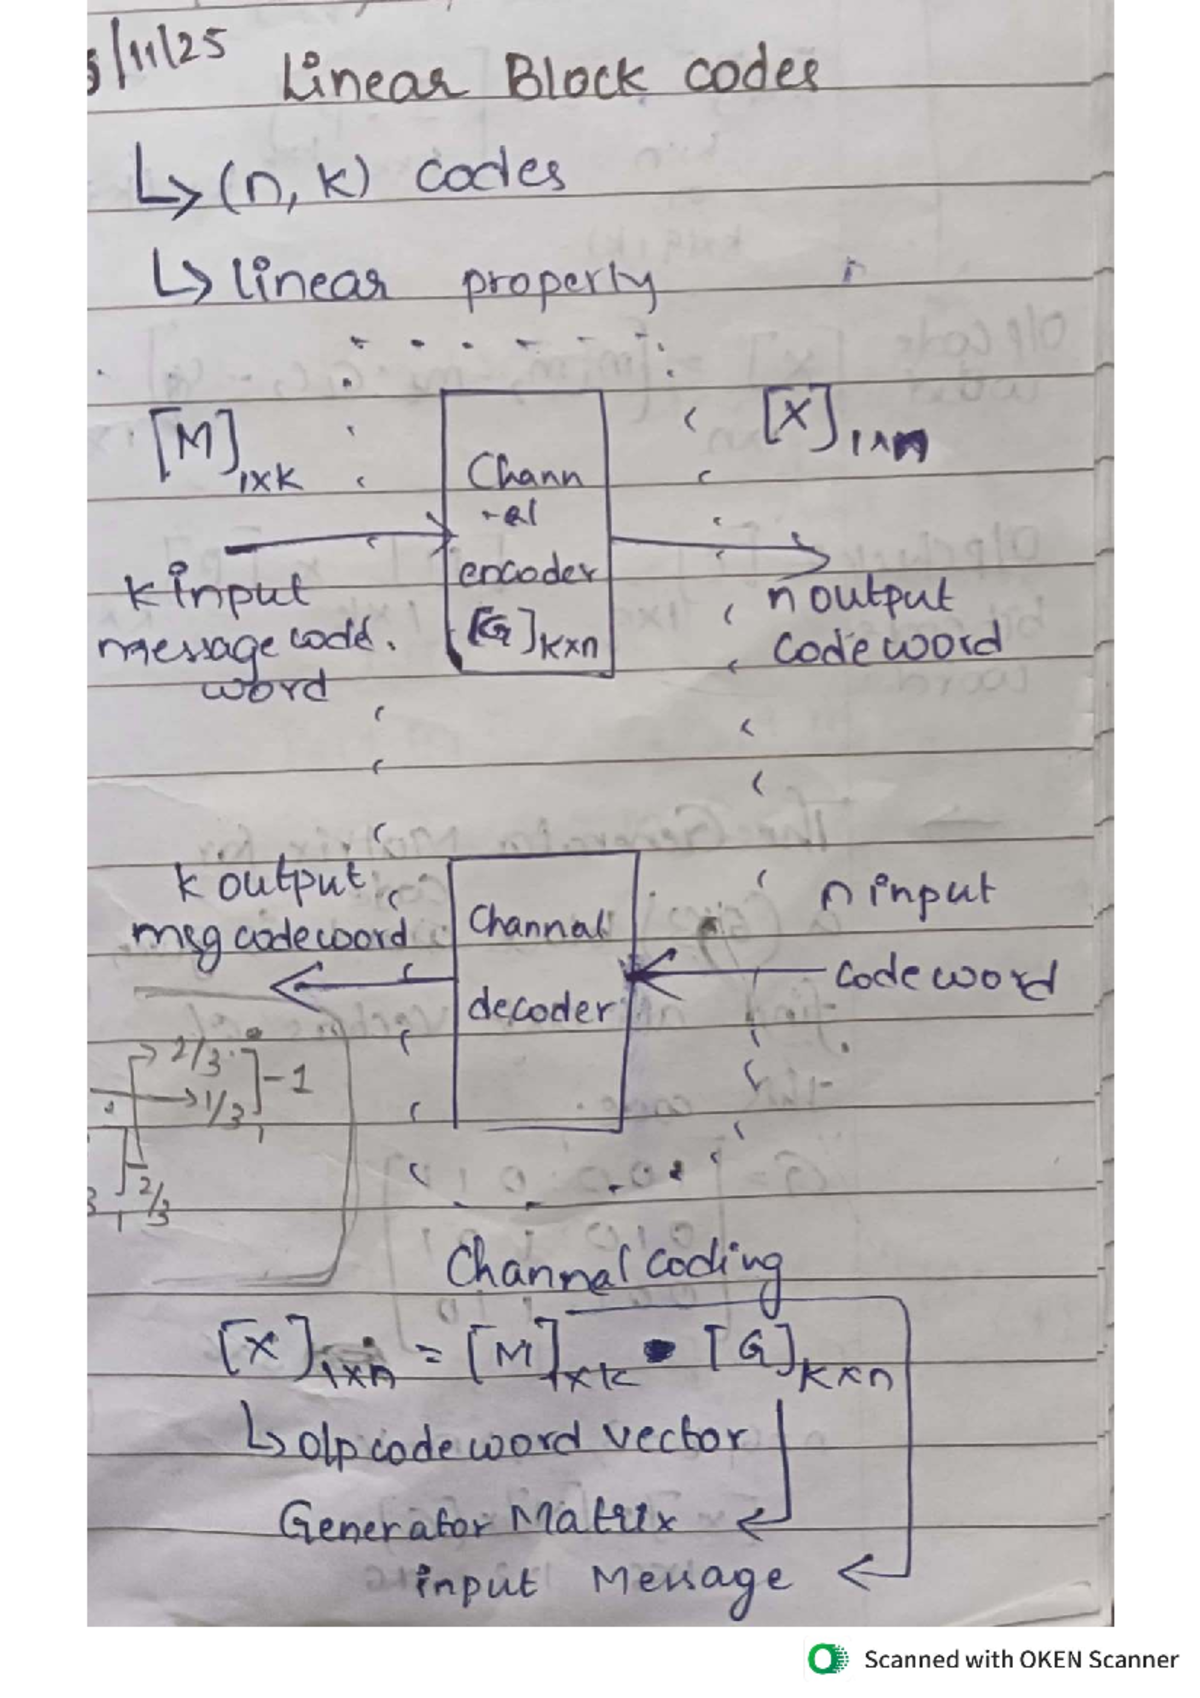 /11/25
Linear Block codes
↳ (n, k) codes
↳ linear property
[M]1xk
[X]1xn
Chann
-el
encoder
[G]kxn
k input
message code
word
n output
code word
k output
msg codeword
Channal
decoder
n input
code word
2/3
1/3
-1
2/3
Channel coding
[X]1xn = [M]1xk • [G]kxn
↳ o/p code word vector
Generator Matrix
input Message
Scanned with OKEN Scanner